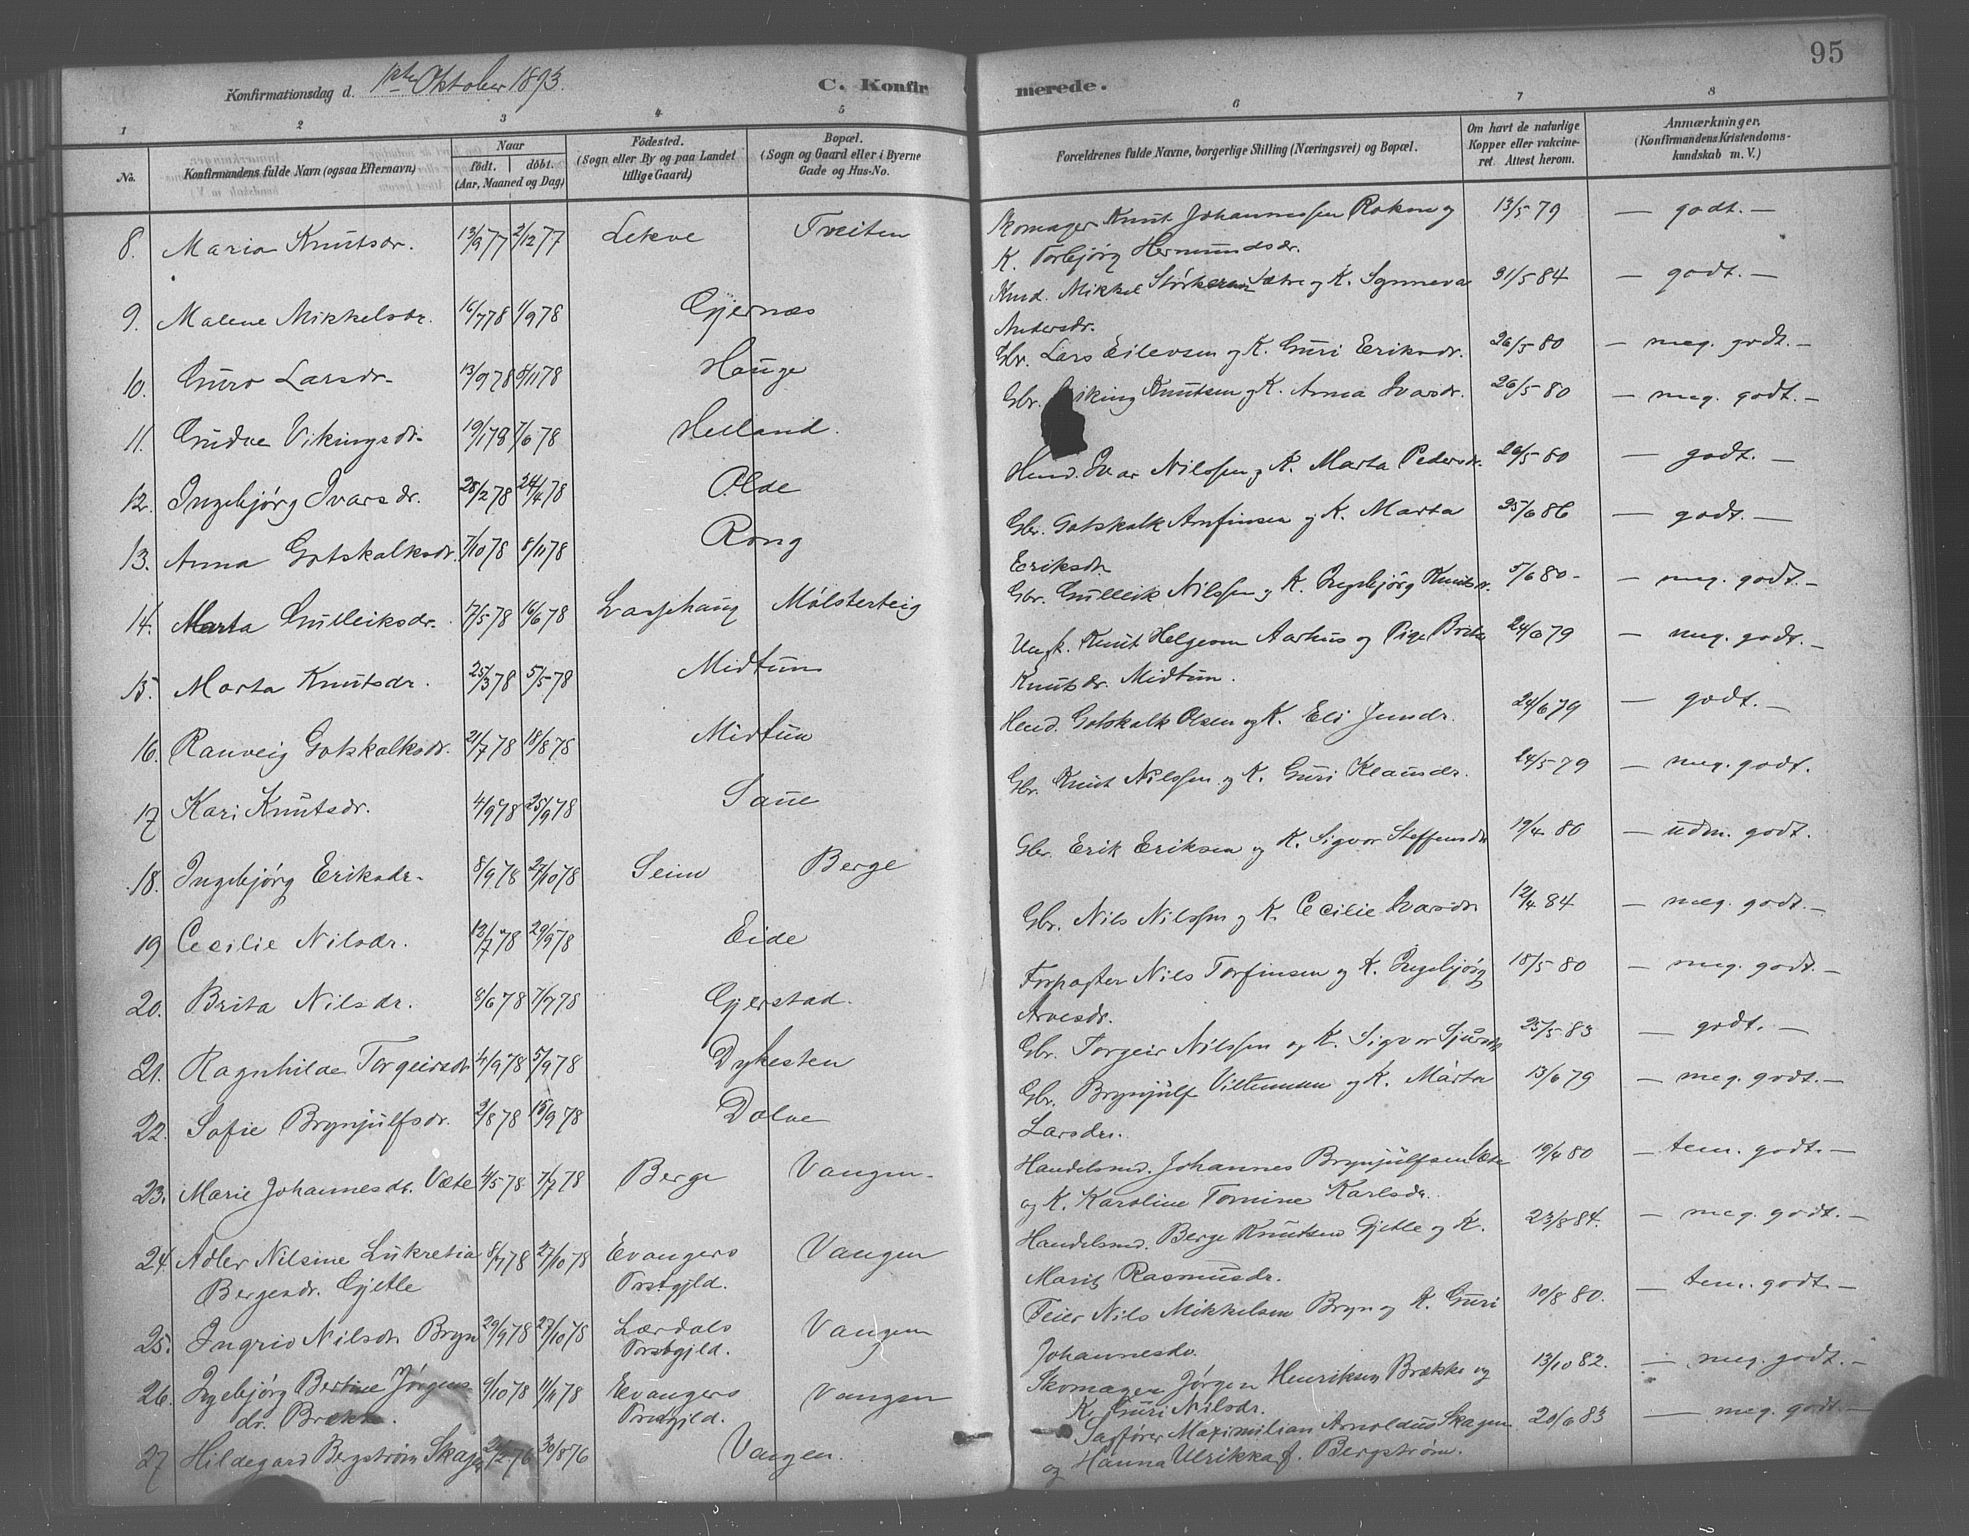 95
Konfirmationsdag d. 1ste Oktober 1893.
C. Konfir
merede.
1 2 3 4 5 6 7 8
No.
Konfirmandens fulde Navn (ogsaa Efternavn)
Naar
födt. döbt.
(Aar, Maaned og Dag)
Födested.
(Sogn eller By og paa Landet
tillige Gaard)
Bopæl.
(Sogn og Gaard eller i Byerne
Gade og Hus-No.
Forældrenes fulde Navne, borgerlige Stilling (Næringsvei) og Bopæl.
Om havt de naturlige
Kopper eller vakcine-
ret. Attest herom.
Anmærkninger.
(Konfirmandens Kristendoms-
kundskab m. V.)
8. Maria Knutsdr. 13/9 77 2/12 77 Lekve Tveiten Skomager Knut Johannessen Rokne og 13/5 79 — godt. —
K. Torbjörg Hermundsdr.
9. Malene Mikkelsdr. 16/7 78 1/9 78 Gjernæs Mikkel Sætre og K. Synneva 31/5 84 — godt. —
Andersdr.
10. Guro Larsdr. 13/9 78 3/11 78 Hauge Gbr. Lars Eilevsen og K. Guri Eriksdr. 26/5 80 — meg. godt. —
11. Gudve Vikingsdr. 19/1 78 7/6 78 Helland. Gbr. Viking Knutsen og K. Anna Ivarsdr. 26/5 80 — meg. godt. —
12. Ingebjörg Ivarsdr. 28/2 78 24/4 78 Olde Husd. Ivar Nilssen og K. Marta Pedersdr. 26/5 80 — godt. —
13. Anna Gotskalksdr. 7/10 78 8/11 78 Rong Gbr. Gotskalk Arnfinsen og K. Marta 25/6 86 — godt. —
Eriksdr.
14. Marta Gulleiksdr. 17/5 78 16/6 78 Mölsterteig Gbr. Gulleik Nilssen og K. Ingebjörg Knutsdr. 5/6 80 — meg. godt. —
15. Marta Knutsdr. 25/3 78 5/5 78 Midtun Ungk. Knut Helgesen Aarhus og Pige Brita 24/6 79 — meg. godt. —
Knutsdr. Midtun.
16. Ranveig Gotskalksdr. 21/7 78 18/8 78 Midtun Husd. Gotskalk Olsen og K. Eli Jensdr. 24/6 79 — godt. —
17 Kari Knutsdr. 4/9 78 25/9 78 Saue Gbr. Knut Nilssen og K. Guri Klausdr. 24/5 79 — meg. godt.
18. Ingebjörg Eriksdr. 8/9 78 27/10 78 Seim Berge Gbr. Erik Eriksen og K. Sigvor Steffensdr. 19/4 80 — udm. godt.
19 Cecilie Nilsdr. 12/7 78 29/9 78 Eide Gbr. Nils Nilssen og K. Cecilie Ivarsdr. 12/4 84 — meg. godt. —
20. Brita Nilsdr. 8/6 78 7/7 78 Gjerstad. Forpagter Nils Torfinsen og K. Ingebjörg 18/5 80 — meg. godt. —
Arvesdr.
21. Ragnhilde Torgeirsdr. 4/9 78 5/9 78 Dykesten Gbr. Torgeir Nilssen og K. Sigvor Sjursdr. 25/5 83 — godt. —
22. Sofie Brynjulfsdr. 2/8 78 15/9 78 Dolve Gbr. Brynjulf Villumsen og K. Marta 13/6 79 — meg. godt. —
Larsdr.
23. Marie Johannesdr. Væte 4/5 78 7/7 78 Berge Vangen. Handelsmd. Johannes Brynjulfsen Væte 19/4 80 — tem. godt. —
og K. Karoline Tomine Karlsdr.
24. Adler Nilsine Lukretia 8/7 78 27/10 78 Evangers Vangen Handelsmd. Berge Knutsen Gjetle og K. 23/8 84. — meg. godt. —
Bergesdr. Gjetle Præstgjld. Marit Rasmusdr.
25. Ingrid Nilsdr. Bryn 29/9 78 27/10 78 Lærdals Vangen Feier Nils Mikkelsen Bryn og K. Guri 10/8 80. — tem. godt. —
Præstgjld. Johannesdr.
26. Ingebjörg Bertine Jörgens 9/10 78 11/11 78 Evangers Vangen Skomager Jörgen Henriksen Brække og 13/10 82. — meg. godt. —
dr. Brække. Præstgjld. K. Guri Nilsdr.
27 Hildegard Bergström Skagen 30/8 76 Vangen. Sagförer Maximilian Arnoldus Skagen 20/6 83 — meg. godt. —
og Hanna Ulrikka f. Bergström.